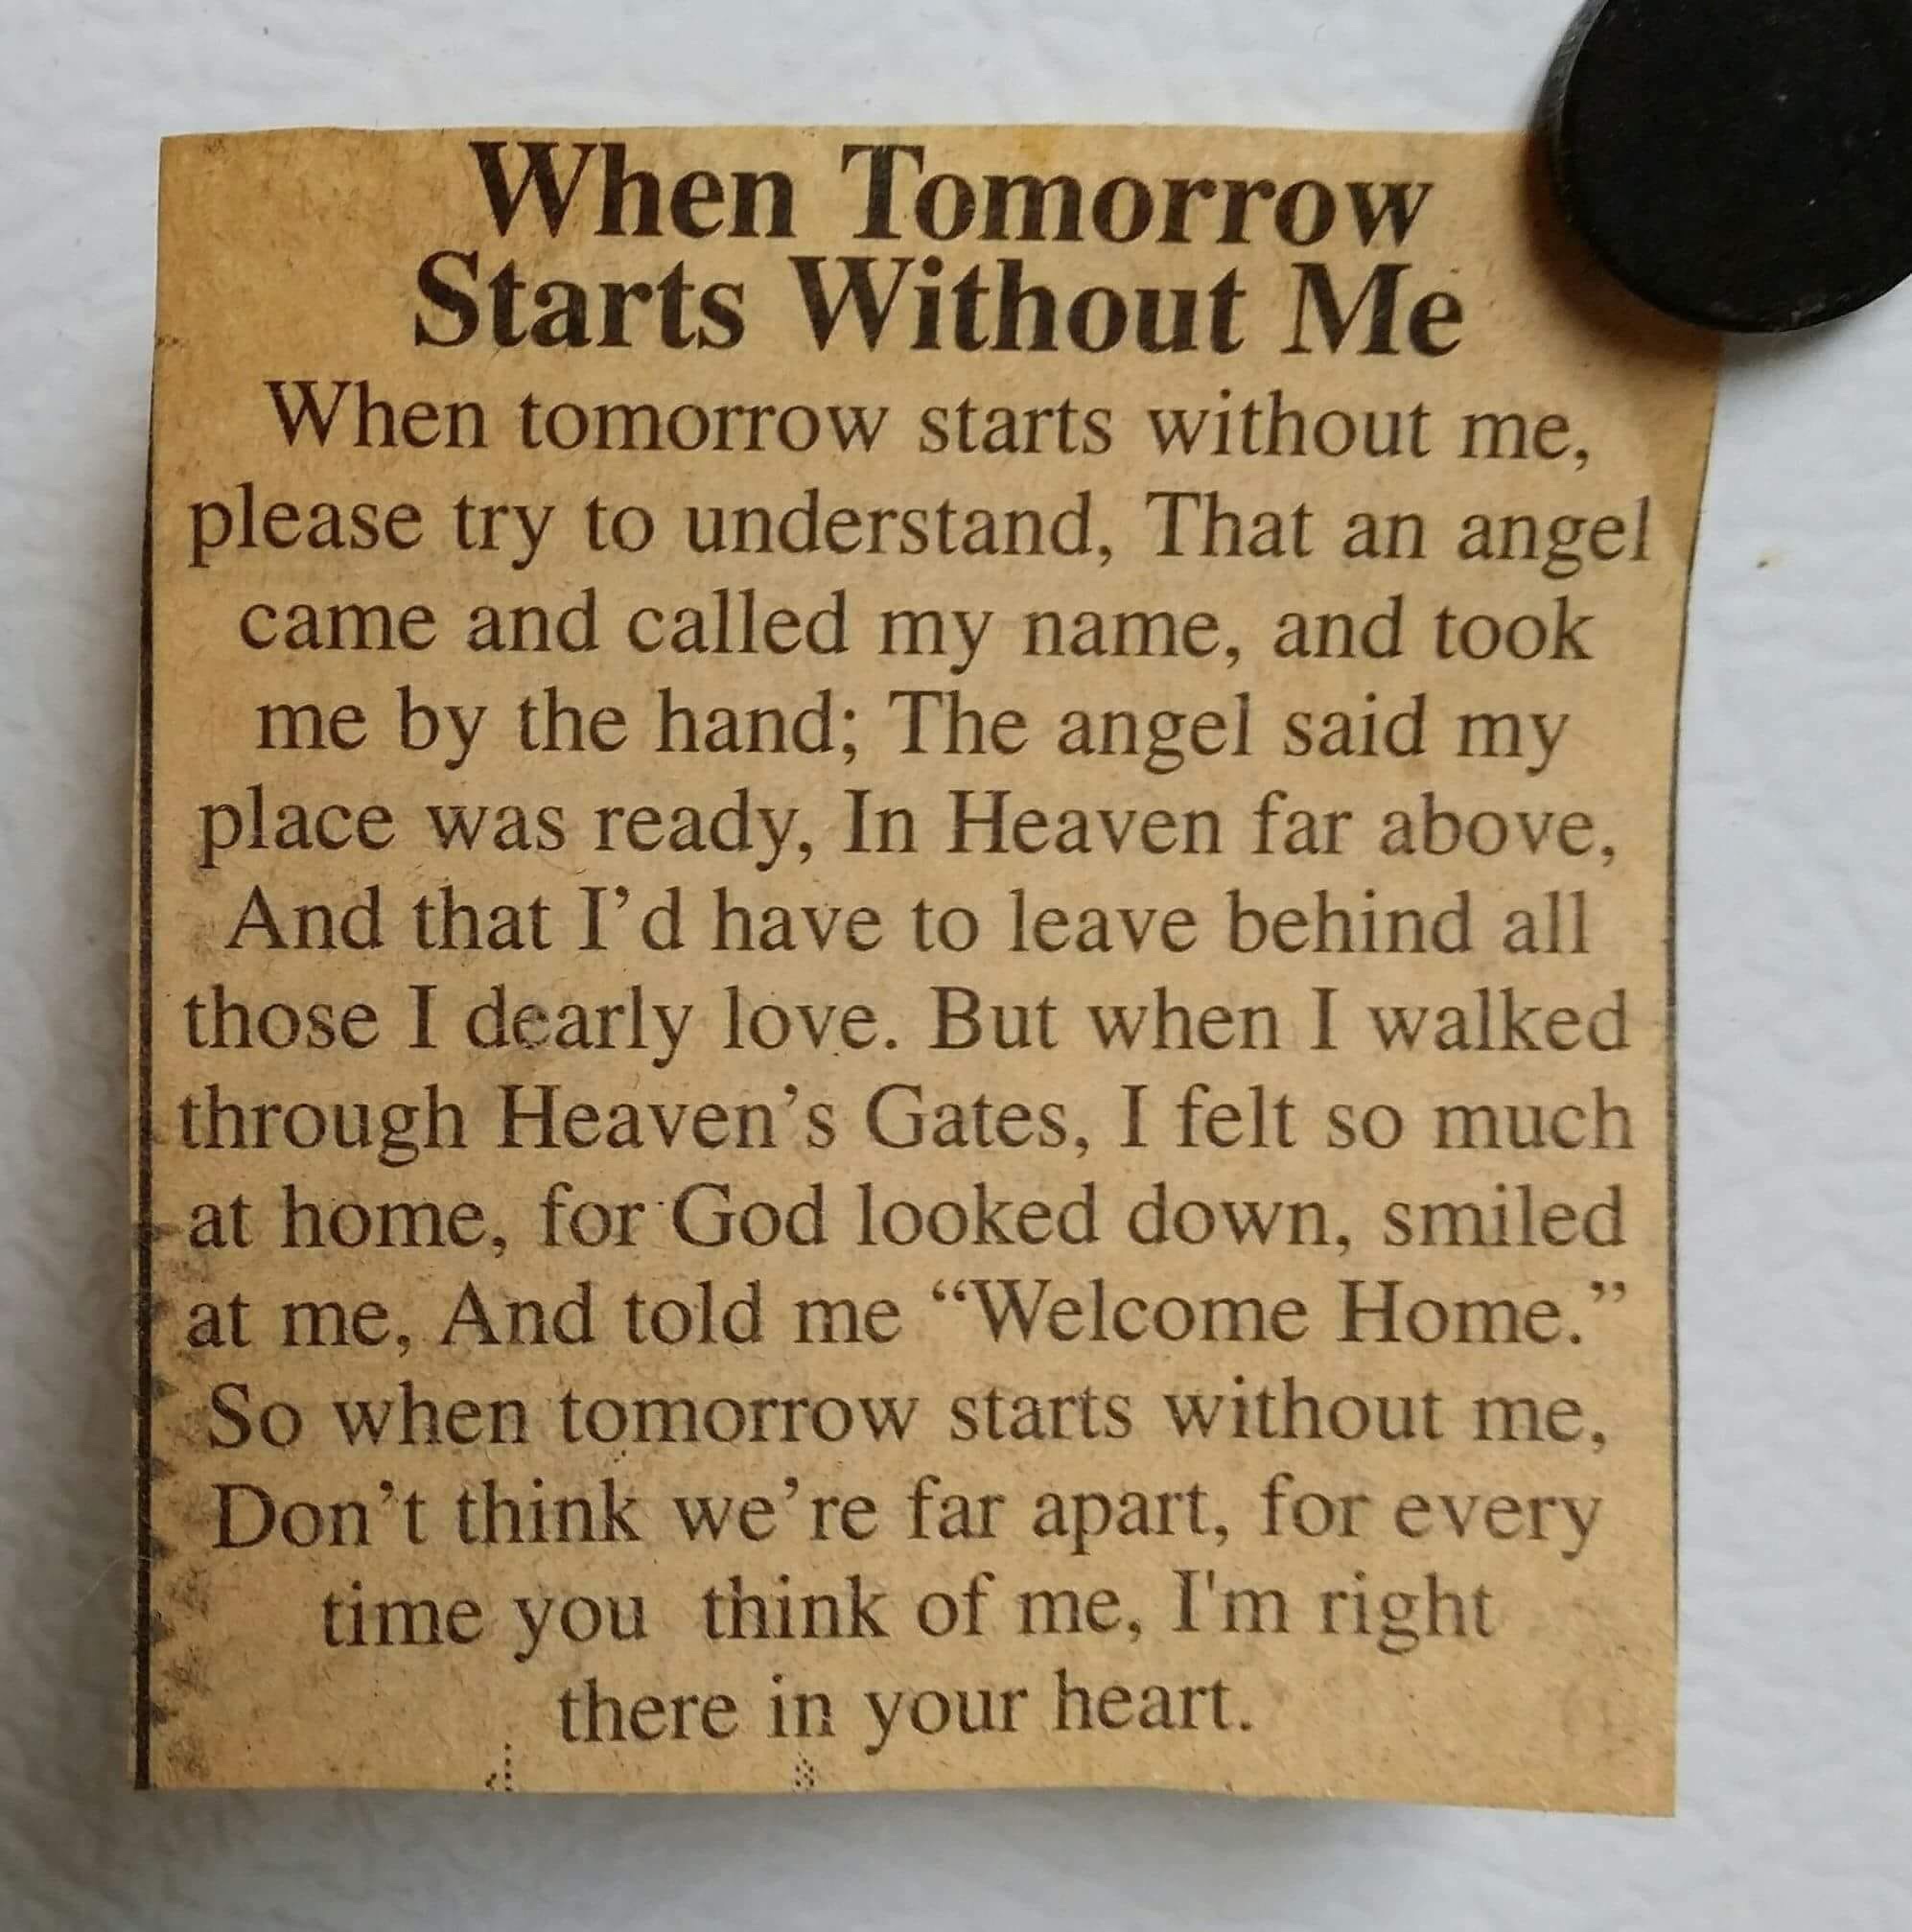 When Tomorrow
Starts Without Me
When tomorrow starts without me,
please try to understand, That an angel
came and called my name, and took
me by the hand; The angel said my
place was ready, In Heaven far above,
And that I’d have to leave behind all
those I dearly love. But when I walked
through Heaven’s Gates, I felt so much
at home, for God looked down, smiled
at me, And told me “Welcome Home.”
So when tomorrow starts without me,
Don’t think we’re far apart, for every
time you think of me, I'm right
there in your heart.